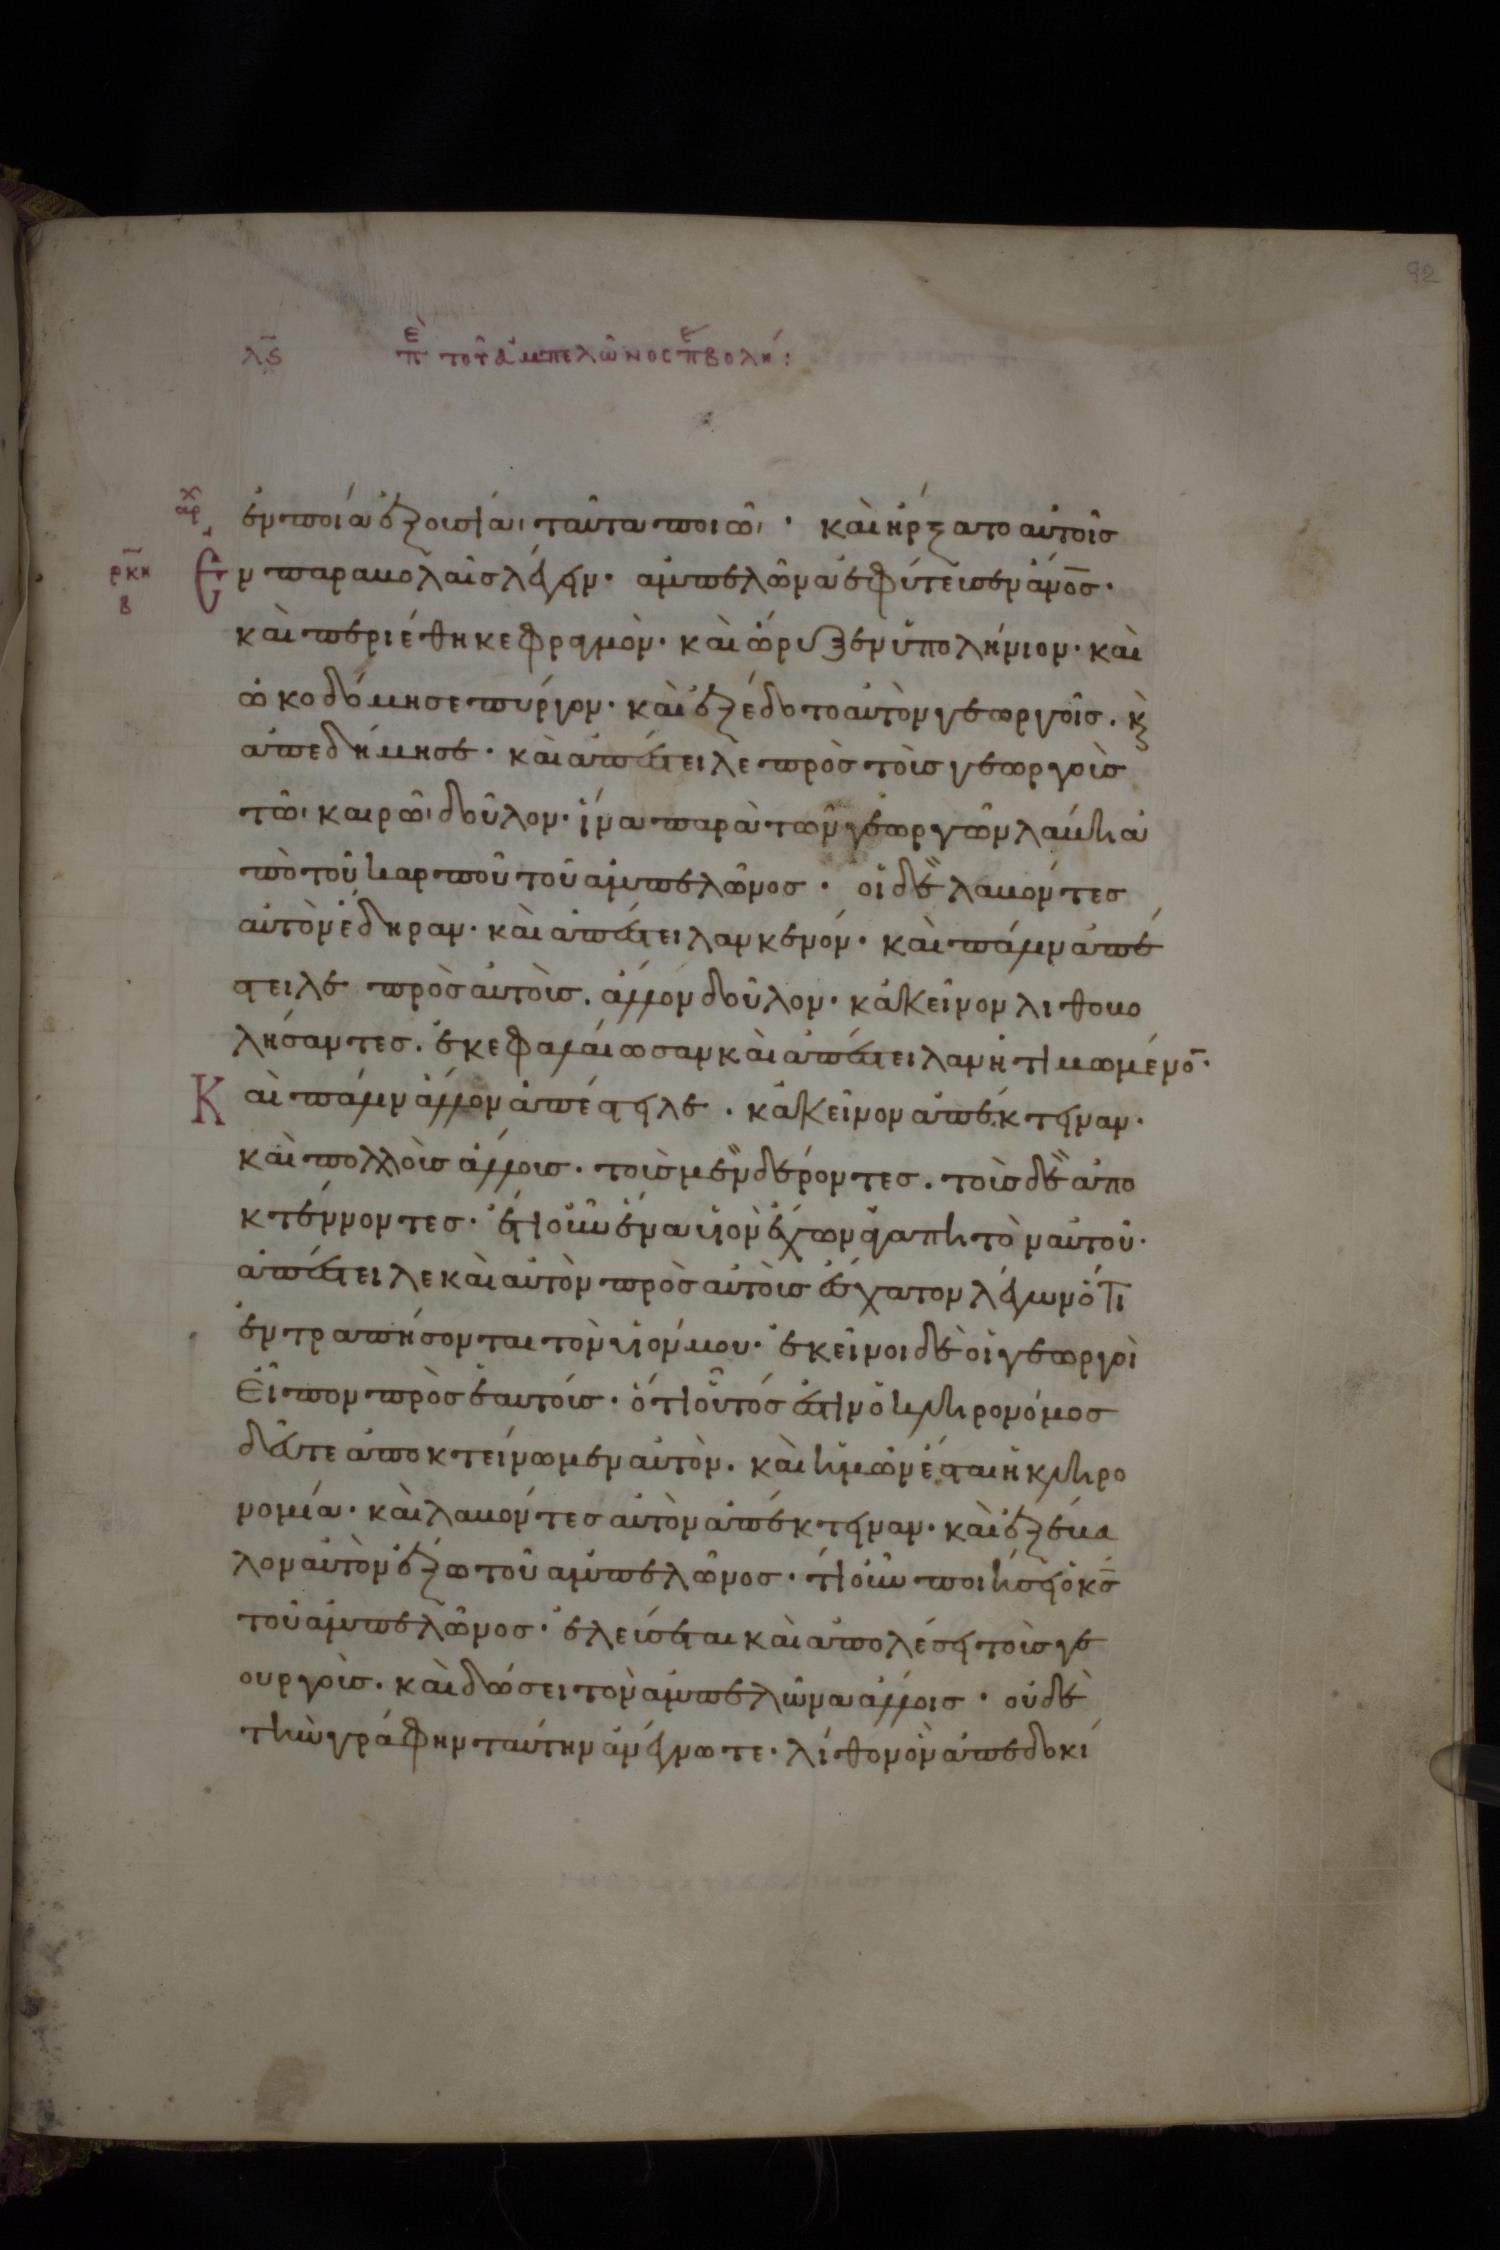 92
λϛ ἐπ τοῦ ἀμπελῶνος π βολή:
ἐν ποία ἐξουσία ταῦτα ποιῶ· καὶ ἤρξατο αὐτοῖς
αρχ
ρκη
β
Ἐν παραβολαῖς λέγειν· ἀμπελῶνα ἐφύτευσεν ἀνος·
καὶ περιέθηκε φραγμὸν· καὶ ὤρυξεν ὑπολήνιον· καὶ
ὠκοδόμησε πύργον· καὶ ἐξέδοτο αὐτὸν γεωργοῖς. κ
ἀπεδήμησε· καὶ ἀπέστειλε πρὸς τοὺς γεωργοὺς
τῶ καιρῶ δοῦλον· ἵνα παρὰ τῶν γεωργῶν λάβη ἀ
πὸ τοῦ καρποῦ τοῦ ἀμπελῶνος· οἱ δὲ λαβόντες
αὐτὸν ἔδηραν· καὶ ἀπέστειλαν κενόν· καὶ πάλιν ἀπέ
στειλε πρὸς αὐτοὺς. ἄλλον δοῦλον· κἀκεῖνον λιθοβο
λήσαντες. ἐκεφαλαίωσαν καὶ ἀπέστειλαν ἠτιμωμένο·
Καὶ πάλιν ἄλλον ἀπέστειλε. κἀκεῖνον ἀπέκτειναν·
καὶ πολλοὺς ἄλλους. τοὺς μὲν δέροντες. τοὺς δὲ ἀπο
κτέννοντες· ἔτι οὖν ἕνα υἱὸν ἔχων ἀγαπητὸν αὐτοῦ·
ἀπέστειλε καὶ αὐτὸν πρὸς αὐτοὺς ἔσχατον λέγων ὅτι
ἐντραπήσονται τὸν υἱόν μου· ἐκεῖνοι δὲ οἱ γεωργοὶ
Εἶπον πρὸς ἑαυτούς· ὅτι οὗτός ἐστιν ὁ κληρονόμος
δεῦτε ἀποκτείνωμεν αὐτὸν. καὶ ἡμῶν ἔσται ἡ κληρο
νομία· καὶ λαβόντες αὐτὸν ἀπέκτειναν· καὶ ἐξέβα
λον αὐτὸν ἔξω τοῦ ἀμπελῶνος· τί οὖν ποιήσει ὁ κς
τοῦ ἀμπελῶνος· ἐλεύσεται καὶ ἀπολέσει τοὺς γε
ουργοὺς. καὶ δώσει τὸν ἀμπελῶνα ἄλλοις· οὐδὲ
τὴν γράφην ταύτην ἀνέγνωτε· λίθον ὃν ἀπεδοκί